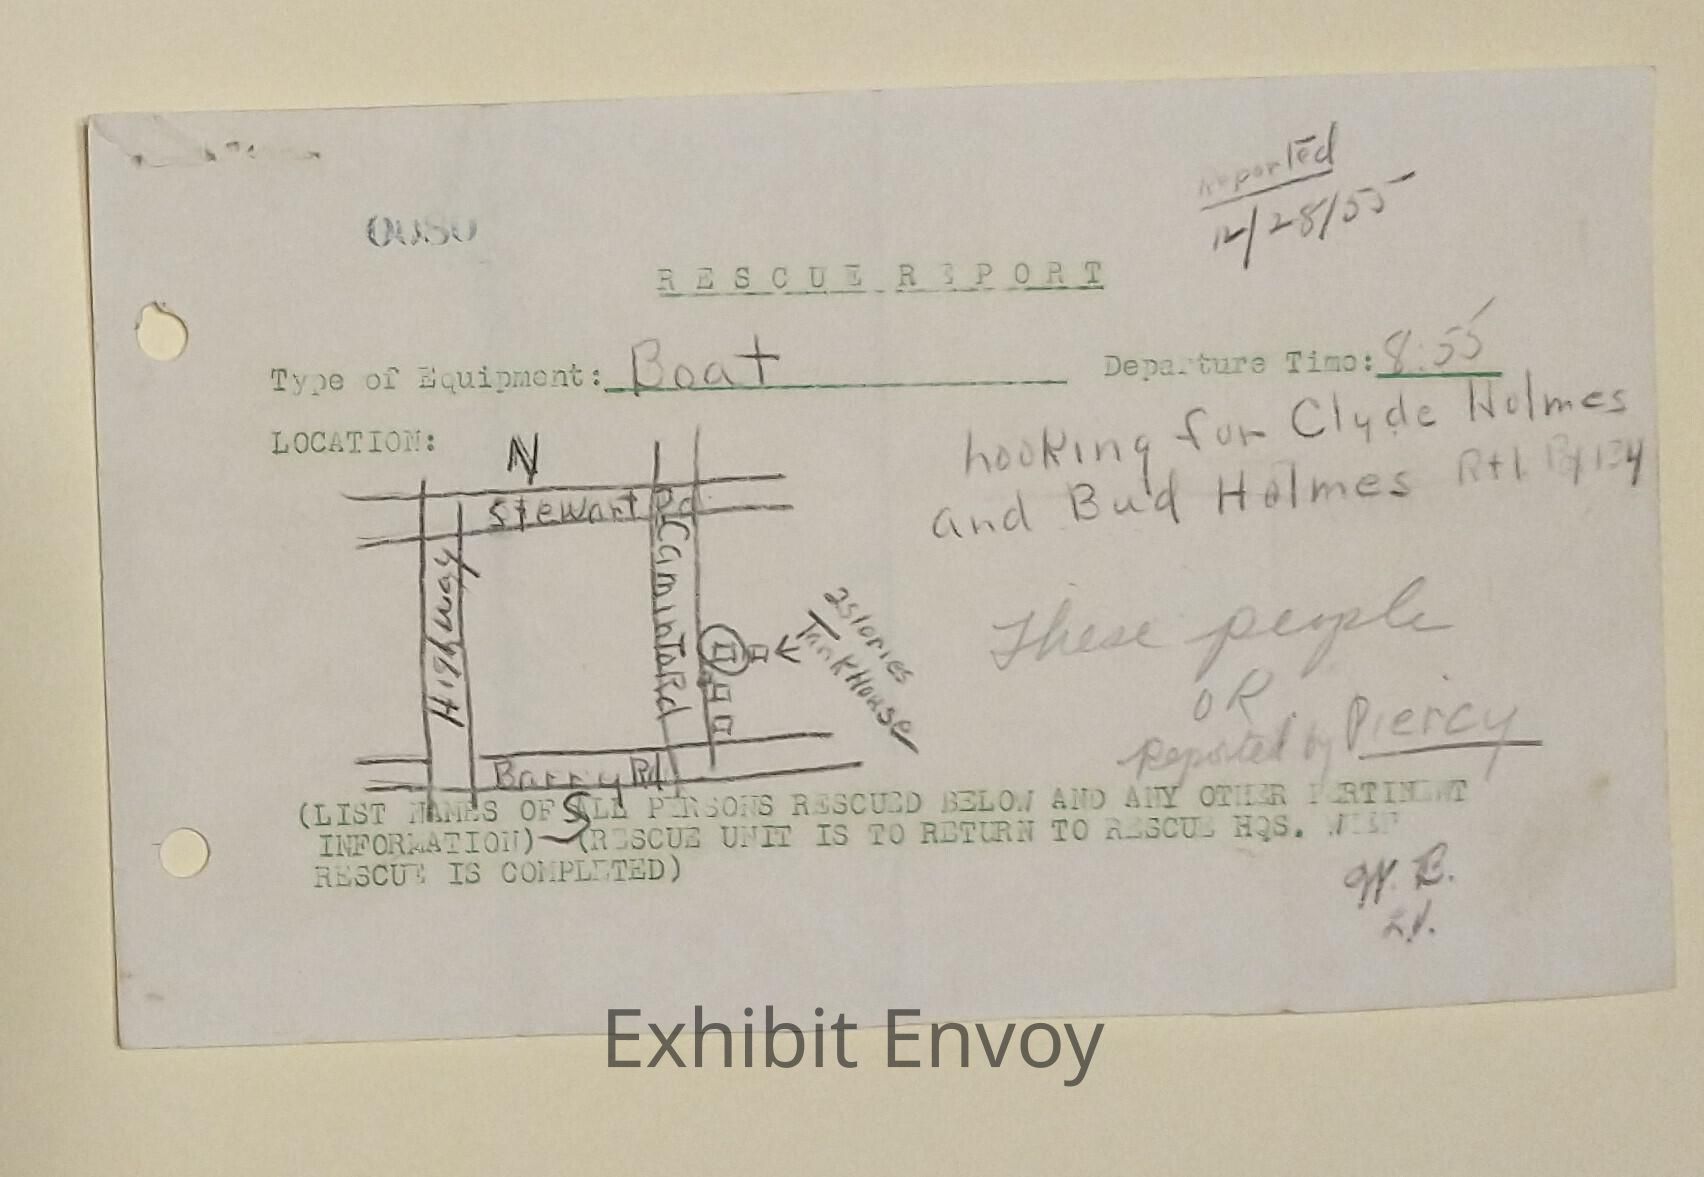 Reported
12/28/55
0080
RESCUE REPORT
Type of Equipment: Boat Departure Time: 8:55
LOCATION:
N
Looking for Clyde Holmes
and Bud Holmes Rt1 Bx134
Stewart Rd
Highway
Camino Rd
2 Stories
Tank House
These people
OR
Reported by Piercy
Barry Rd
S
(LIST NAMES OF ALL PERSONS RESCUED BELOW AND ANY OTHER PERTINENT
INFORMATION) (RESCUE UNIT IS TO RETURN TO RESCUE HQS. WHEN
RESCUE IS COMPLETED)
W. B.
Exhibit Envoy